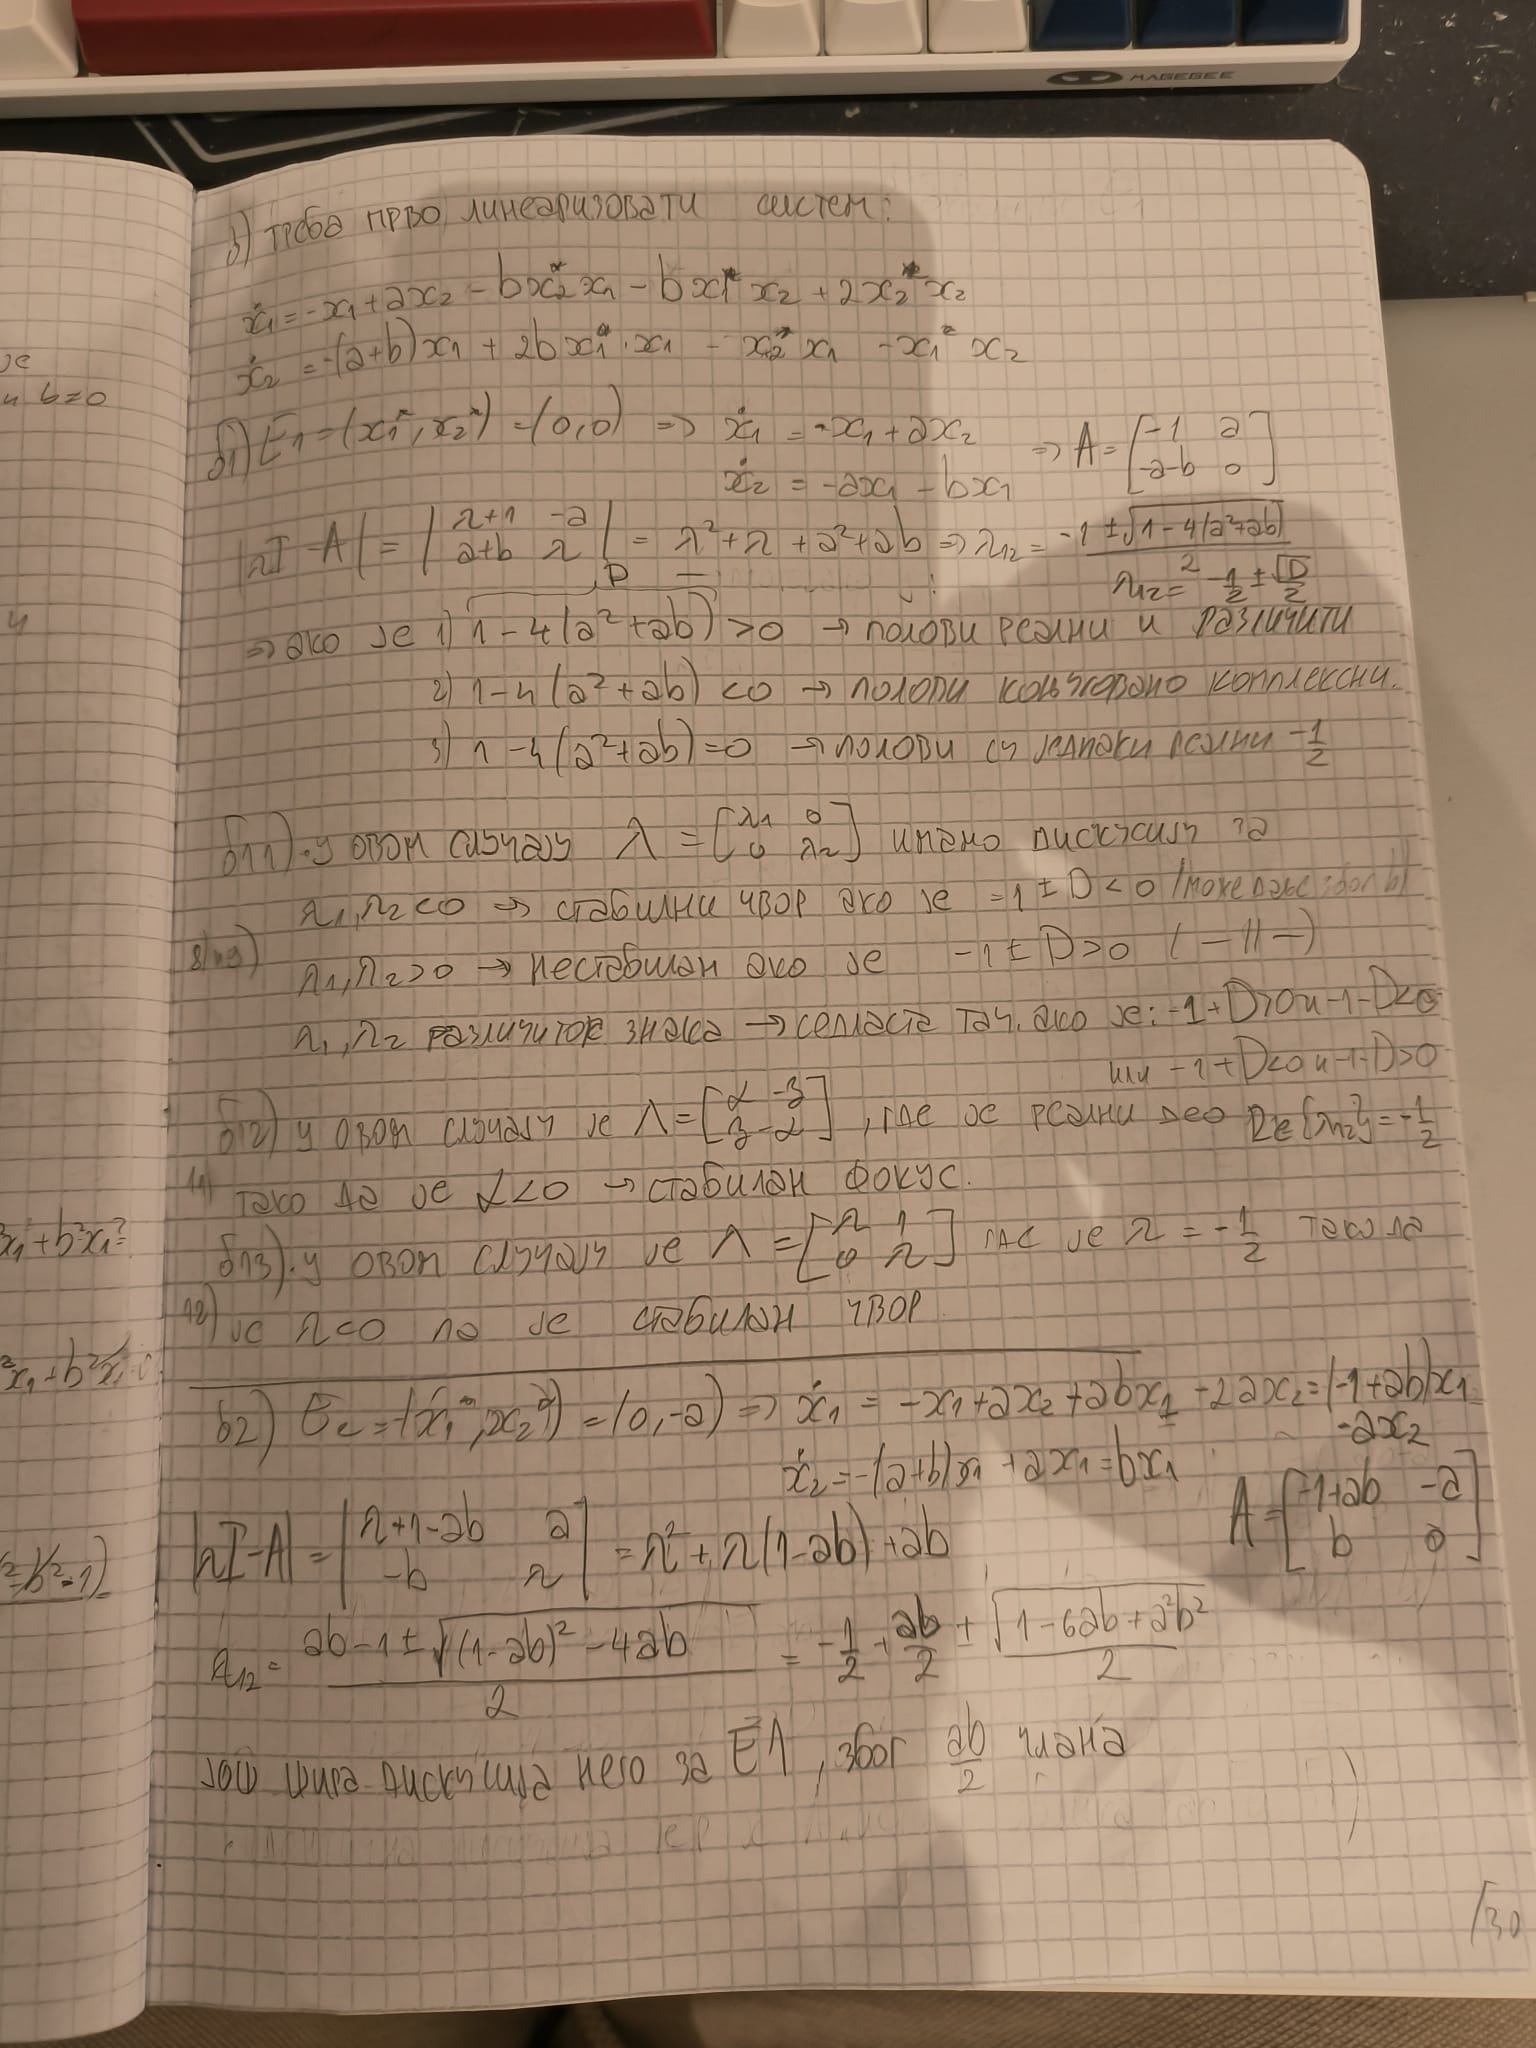 MAGEGEE
б) треба прво линеаризовати систем:
ẋ₁ = -x₁ + ax₂ - bx₂*x₁ - bx₁*x₂ + 2x₂*x₂
ẋ₂ = -(a+b)x₁ + 2bx₁*·x₁ - x₂*x₁ - x₁*x₂
б1) E₁ = (x₁*, x₂*) = (0,0) => ẋ₁ = -x₁ + ax₂
ẋ₂ = -ax₁ - bx₁
=> A = [-1 a
-a-b 0]
|λI - A| = |λ+1 -a
a+b λ| = λ² + λ + a² + ab => λ₁₂ = (-1 ± √(1 - 4(a²+ab)))/2
λ₁₂ = -1/2 ± √D/2
D
=> ако је 1) 1 - 4(a²+ab) > 0 → полови реални и различити
2) 1 - 4(a²+ab) < 0 → полови коњуговано комплексни.
3) 1 - 4(a²+ab) = 0 → полови су једнаки реални -1/2
б11) · у овом случају Λ = [λ₁ 0
0 λ₂] имамо дискусију за
λ₁, λ₂ < 0 → стабилни чвор ако је -1 ± D < 0
λ₁, λ₂ > 0 → нестабилан ако је -1 ± D > 0 (-||-)
λ₁, λ₂ различитог знака → седласта тач. ако је: -1+D>0 и -1-D<0
или -1+D<0 и -1-D>0
б12) у овом случају је Λ = [α -β
β -α], где је реални део Re{λ₁₂} = -1/2
тако да је α<0 → стабилан фокус.
б13) · у овом случају је Λ = [λ 1
0 λ] где је λ = -1/2 тако да
је λ<0 па је стабилан чвор
б2) E₂ = (x₁*, x₂*) = (0,-a) => ẋ₁ = -x₁ + ax₂ + abx₁ - 2ax₂ = (-1+ab)x₁
-ax₂
ẋ₂ = -(a+b)x₁ + ax₁ = bx₁
A = [-1+ab -a
b 0]
|λI - A| = |λ+1-ab a
-b λ| = λ² + λ(1-ab) + ab
λ₁₂ = (ab - 1 ± √((1-ab)² - 4ab))/2 = -1/2 + ab/2 ± √(1 - 6ab + a²b²)/2
још шира дискусија него за E1, због ab/2 члана
/30
је
и b≠0